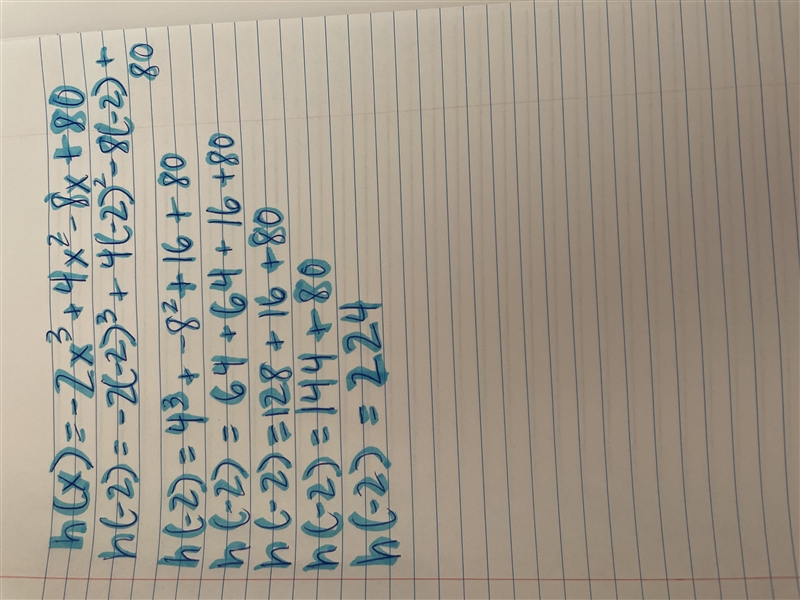 h(x) = -2x³ + 4x² - 8x + 80
h(-2) = -2(-2)³ + 4(-2)² - 8(-2) +
80
h(-2) = 4³ + -8² + 16 + 80
h(-2) = 64 + 64 + 16 + 80
h(-2) = 128 + 16 + 80
h(-2) = 144 + 80
h(-2) = 224